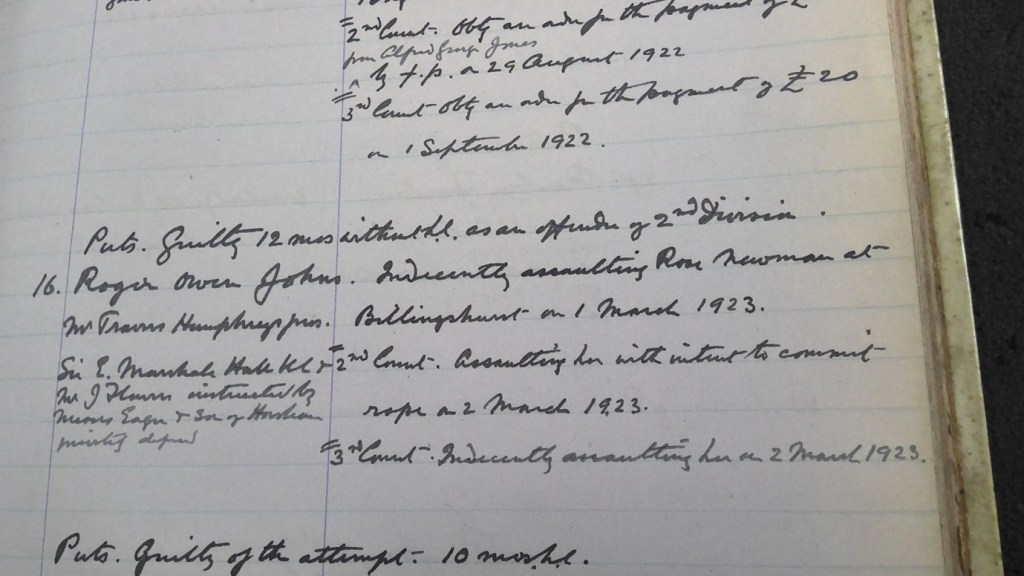 2nd Count. Obtg an order for the payment of £
from Alfred George Jones
by f.p. on 29 August 1922
3rd Count Obtg an order for the payment of £20
on 1 September 1922.
Puts. Guilty 12 mos without h.l. as an offender of 2nd Division.
16. Roger Owen Johns. Indecently assaulting Rose Newman at
Mr Travers Humphreys pros. Billingshurst on 1 March 1923.
Sir E. Marshall Hall KC & 2nd Count. Assaulting her with intent to commit
Mr J Flowers instructed by
rape on 2 March 1923.
Messrs Eager & Son of Horsham
privately defend
3rd Count. Indecently assaulting her on 2 March 1923.
Puts. Guilty of the attempt. 10 mos. h.l.